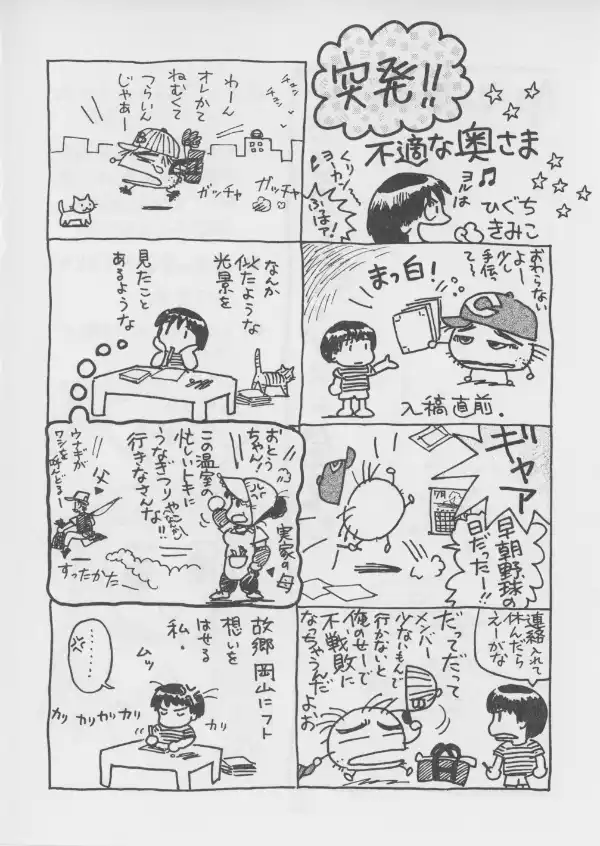 突発!!
不適な奥さま
ひぐち
きみこ
ヨルは
♫
くりリン
ヨリカン
ぷはァ!
おわらない
よー
少し
手伝っ
て〜
まっ白!
入稿直前.
ギャア
早朝野球の
日だったー!!
連絡入れて
休んだら
えーがな
だってだって
メンバー
少ないもんで
行かないと
俺のせーで
不戦敗に
なっちゃうんだ
よお
わーん
オレかて
ねむくて
つらいん
じゃあー
チョッ
チョッ
ガッチャ
ガッチャ
なんか
似たような
光景を
見たこと
あるような
おとう
ちゃん!
この温室の
忙しいトキに
うなぎつりや
行きなさんな!!
実家の母
父
ウナギが
ワシを
呼んどるー
すったかた
故郷 岡山にフト
想いを
はせる
私.
ムッ
カリ カリカリカリ
カリ